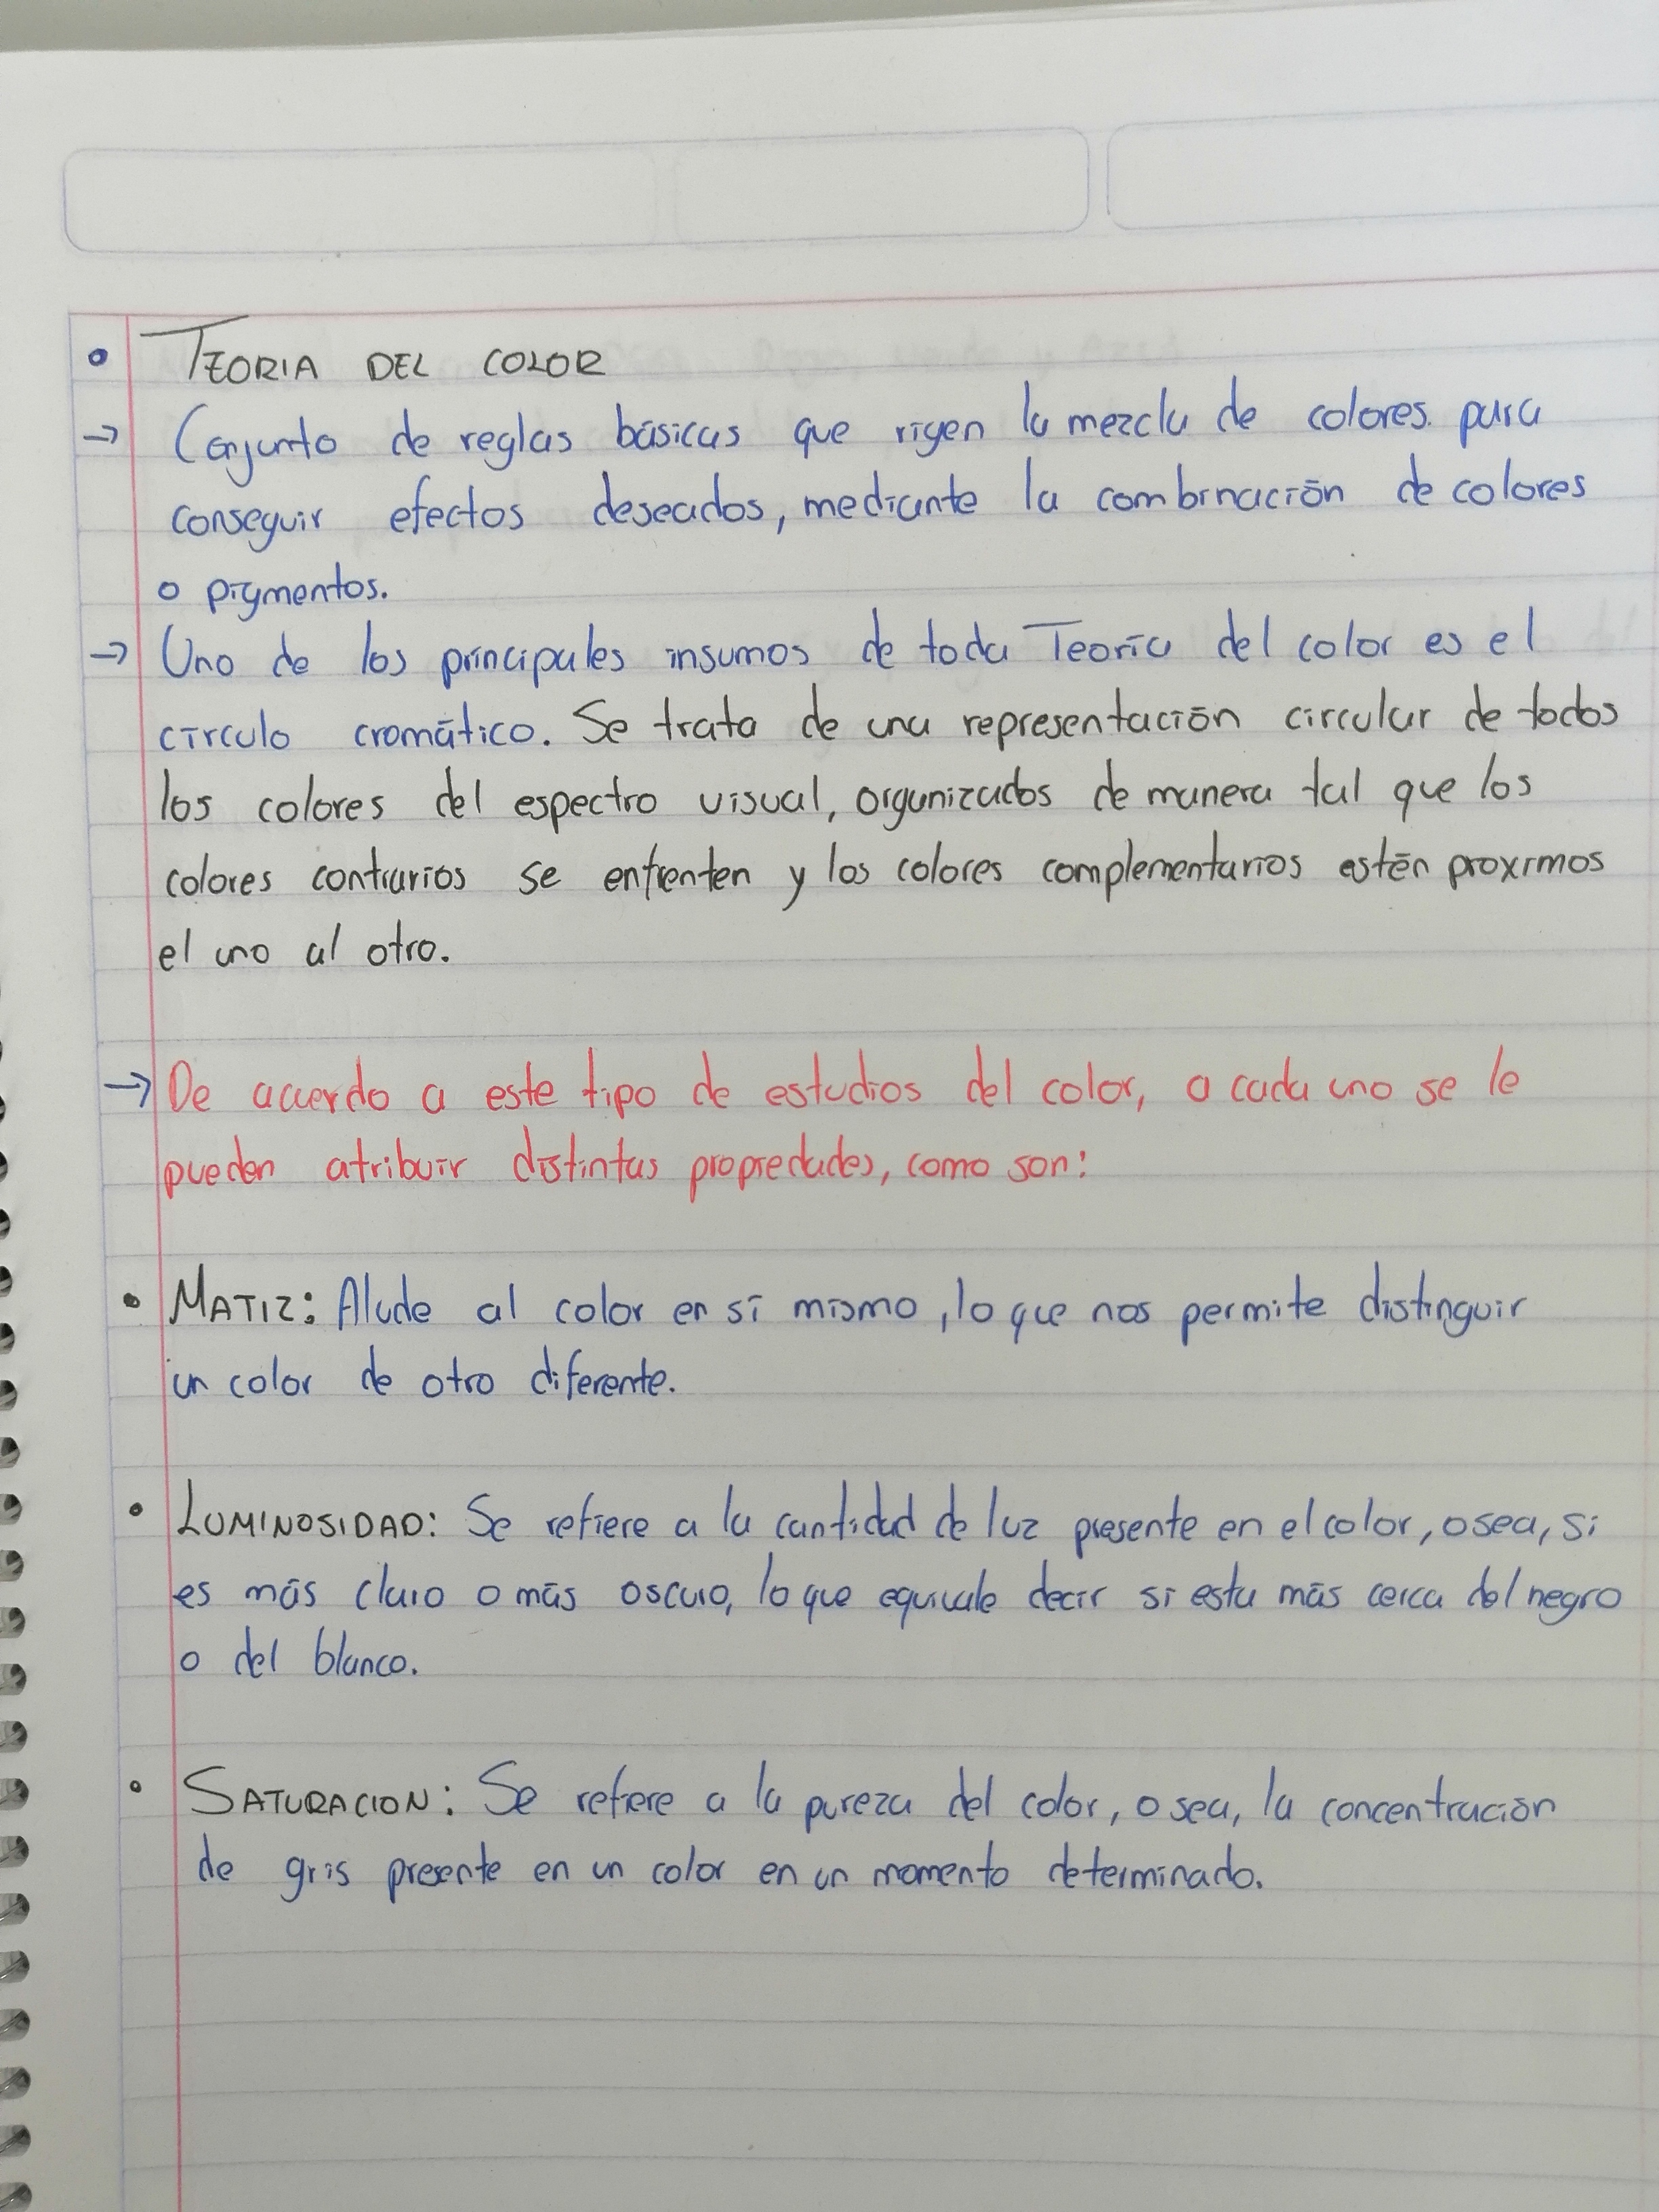 • TEORIA DEL COLOR
→ Conjunto de reglas básicas que rigen la mezcla de colores. para
conseguir efectos deseados, mediante la combinación de colores
o pigmentos.
→ Uno de los principales insumos de toda Teoría del color es el
círculo cromático. Se trata de una representación circular de todos
los colores del espectro visual, organizados de manera tal que los
colores contrarios se enfrenten y los colores complementarios estén proximos
el uno al otro.
→ De acuerdo a este tipo de estudios del color, a cada uno se le
pueden atribuir distintas propiedades, como son:
• MATIZ: Alude al color en sí mismo, lo que nos permite distinguir
un color de otro diferente.
• LUMINOSIDAD: Se refiere a la cantidad de luz presente en el color, osea, si
es más claro o más oscuro, lo que equivale decir si esta más cerca del negro
o del blanco.
• SATURACION: Se refiere a la pureza del color, o sea, la concentración
de gris presente en un color en un momento determinado.